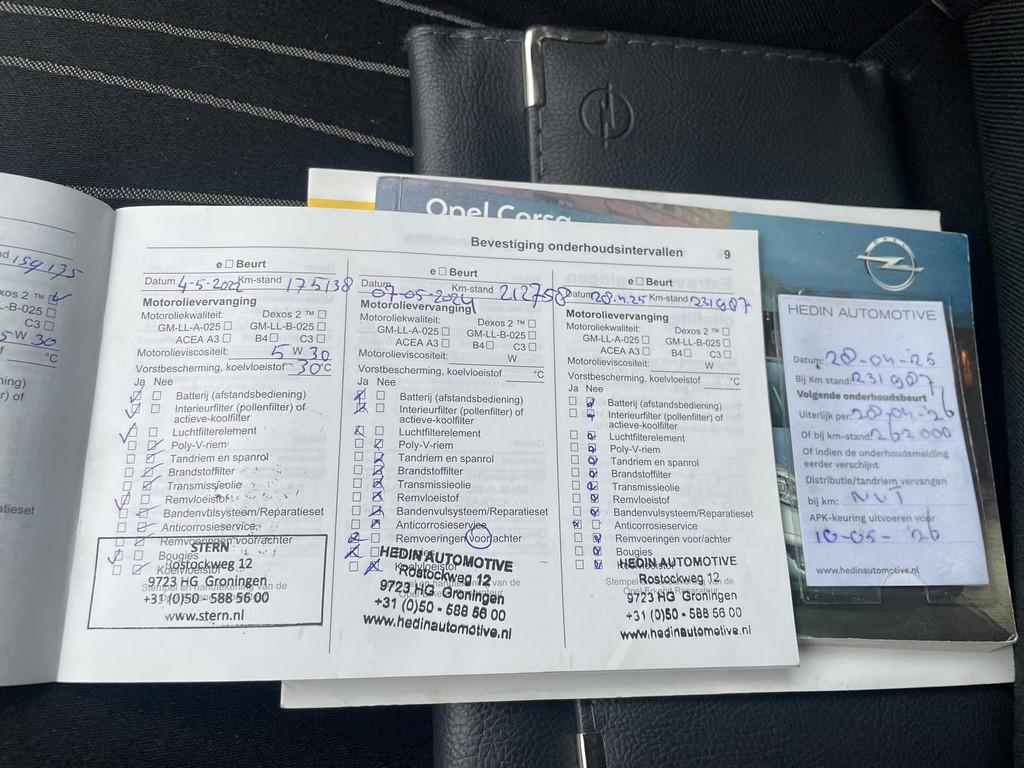 Opel Corsa
Bevestiging onderhoudsintervallen 9
159175
xos 2 ™
-B-025
C3
5 W 30
°C
ning)
r) of
atieset
e Beurt
Datum 4-5-202 Km-stand 175138
Motorolievervanging
Motoroliekwaliteit: Dexos 2 ™
GM-LL-A-025 GM-LL-B-025
ACEA A3 B4 C3
Motorolieviscositeit: 5 W 30
Vorstbescherming, koelvloeistof -30 °C
Ja Nee
Batterij (afstandsbediening)
Interieurfilter (pollenfilter) of
actieve-koolfilter
Luchtfilterelement
Poly-V-riem
Tandriem en spanrol
Brandstoffilter
Transmissieolie
Remvloeistof
Bandenvulsysteem/Reparatieset
Anticorrosieservice
Remvoeringen voor/achter
Bougies
Koelvloeistof
STERN
Rostockweg 12
9723 HG Groningen
+31 (0)50 - 588 56 00
www.stern.nl
e Beurt
Datum 07-05-2024 Km-stand 212758
Motorolievervanging
Motoroliekwaliteit: Dexos 2 ™
GM-LL-A-025 GM-LL-B-025
ACEA A3 B4 C3
Motorolieviscositeit: W
Vorstbescherming, koelvloeistof °C
Ja Nee
Batterij (afstandsbediening)
Interieurfilter (pollenfilter) of
actieve-koolfilter
Luchtfilterelement
Poly-V-riem
Tandriem en spanrol
Brandstoffilter
Transmissieolie
Remvloeistof
Bandenvulsysteem/Reparatieset
Anticorrosieservice
Remvoeringen voor/achter
Koelvloeistof
HEDIN AUTOMOTIVE
Rostockweg 12
9723 HG Groningen
+31 (0)50 - 588 56 00
www.hedinautomotive.nl
e Beurt
Datum 28-4-25 Km-stand 231987
Motorolievervanging
Motoroliekwaliteit: Dexos 2 ™
GM-LL-A-025 GM-LL-B-025
ACEA A3 B4 C3
Motorolieviscositeit: W
Vorstbescherming, koelvloeistof °C
Ja Nee
Batterij (afstandsbediening)
Interieurfilter (pollenfilter) of
actieve-koolfilter
Luchtfilterelement
Poly-V-riem
Tandriem en spanrol
Brandstoffilter
Transmissieolie
Remvloeistof
Bandenvulsysteem/Reparatieset
Anticorrosieservice
Remvoeringen voor/achter
Bougies
HEDIN AUTOMOTIVE
Rostockweg 12
9723 HG Groningen
+31 (0)50 - 588 56 00
www.hedinautomotive.nl
HEDIN AUTOMOTIVE
Datum: 28-04-25
Bij Km stand: 231987
Volgende onderhoudsbeurt
Uiterlijk per: 28-04-26
Of bij km-stand: 262000
Of indien de onderhoudsmelding
eerder verschijnt
Distributie/tandriem vervangen
bij km: NVT
APK-keuring uitvoeren voor
10-05-'26
www.hedinautomotive.nl